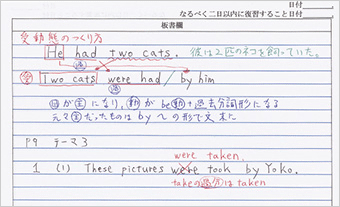 日付
なるべく二日以内に復習すること日付
板書欄
受動態のつくり方
He had two cats. 彼は2匹のネコを飼っていた。
過
受 Two cats were had / by him
過
目が主になり、動がbe動+過去分詞形になる
元々主だったものはbyへの形で文末に
P9 テーマ3
were taken.
1 (1) These pictures were took by Yoko.
takeの過分はtaken